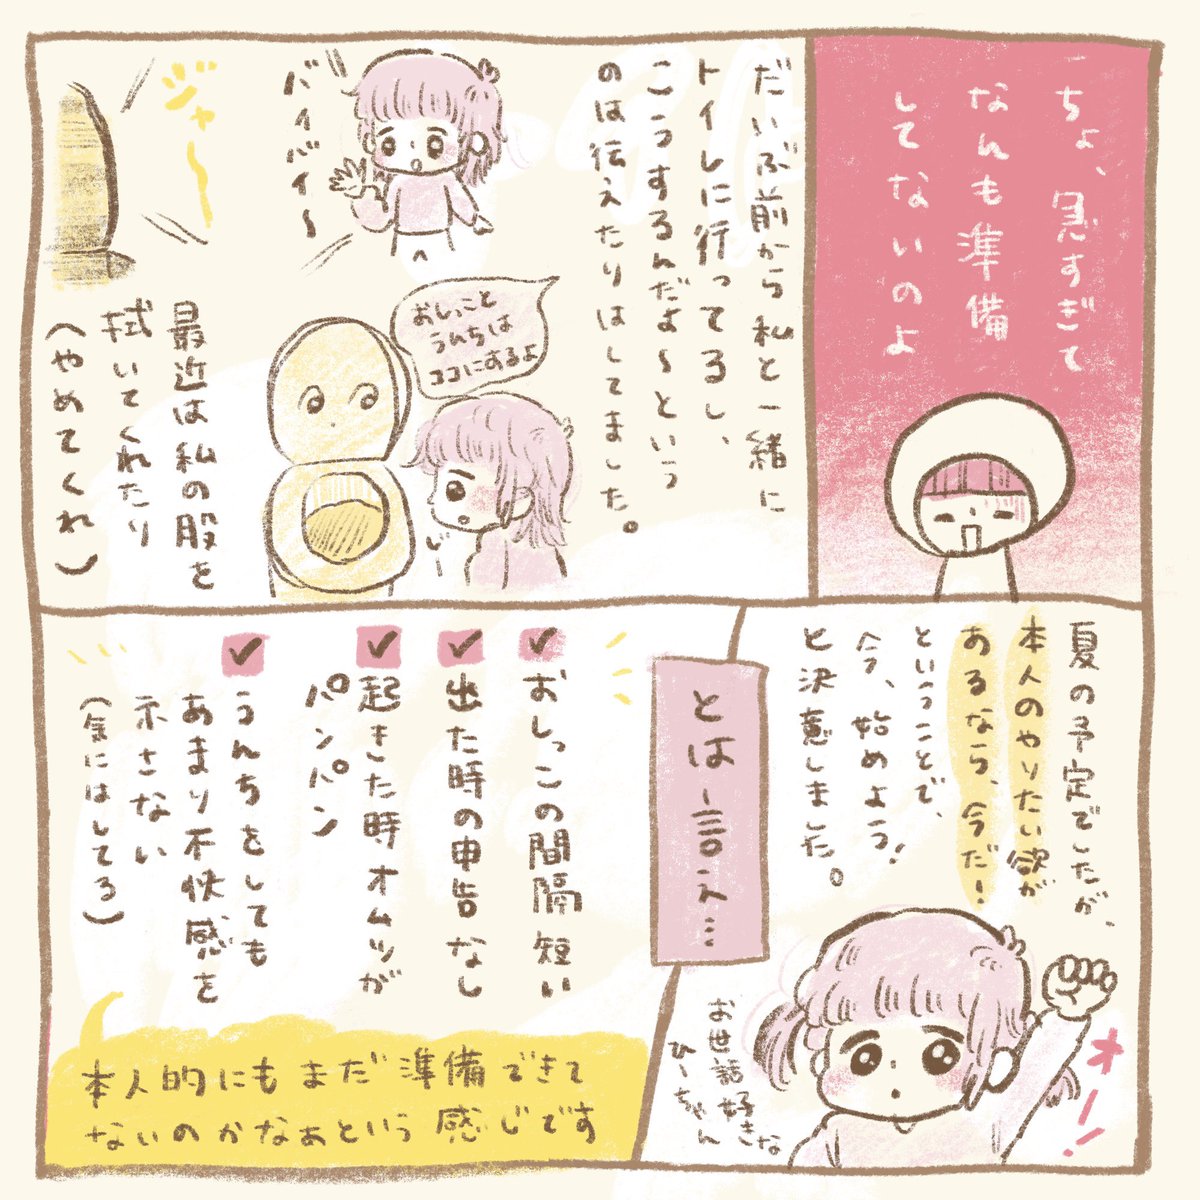 ちょ、急すぎて
なんも準備
してないのよ
だいぶ前から私と一緒に
トイレに行ってるし、
こうするんだよ～という
のは伝えたりはしてました。
バイバイ～
ジャ～
おしっこと
うんちは
ココにするよ
最近は私の股を
拭いてくれたり
(やめてくれ)
夏の予定でしたが、
本人のやりたい欲が
あるなら、今だ!
ということで、
今、始めよう!
と決意しました。
オーー!
お世話好きな
ひーちゃん
とは言え…
✓おしっこの間隔短い
✓出た時の申告なし
✓起きた時オムツが
パンパン
✓うんちをしても
あまり不快感を
示さない
(気にはしてる)
本人的にもまだ準備できて
ないのかなぁという感じです